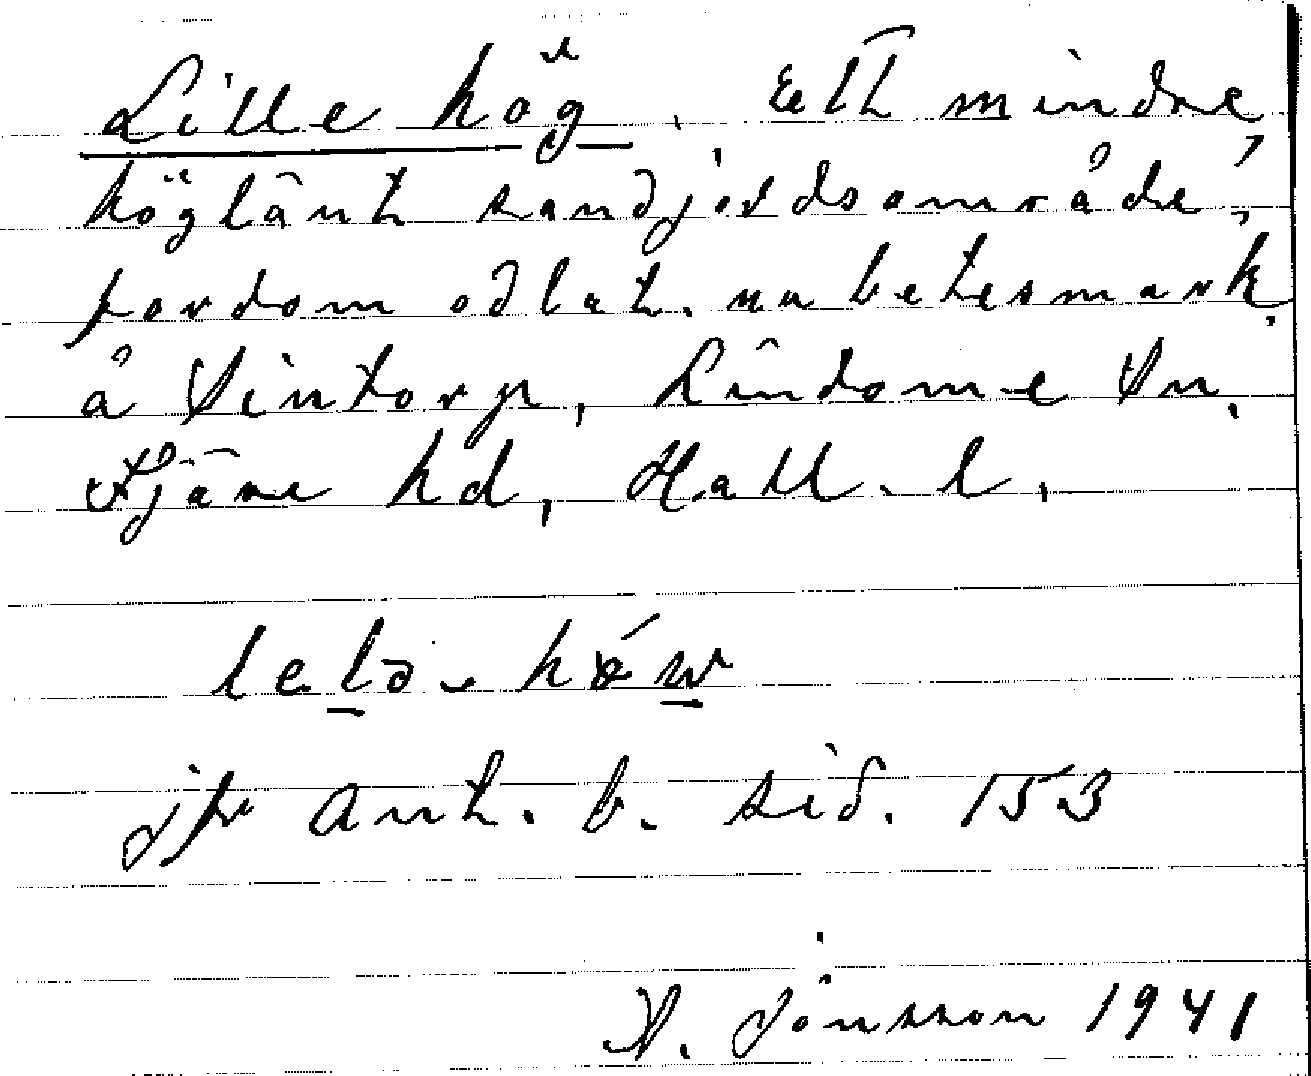 Lille hög. Ett mindre,
höglänt sandjordsområde,
fordom odlat, nu betesmark.
å Sintorp, Lindome Sn.
Fjäre hd, Hall. l.
lelə-høw
jfr ant. b. sid. 153
Jönsson 1941